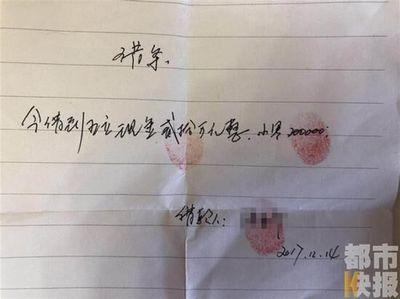 借条
今借到 现金贰拾万元整.小写200000.
借款人:
2017.12.14
都市
快报